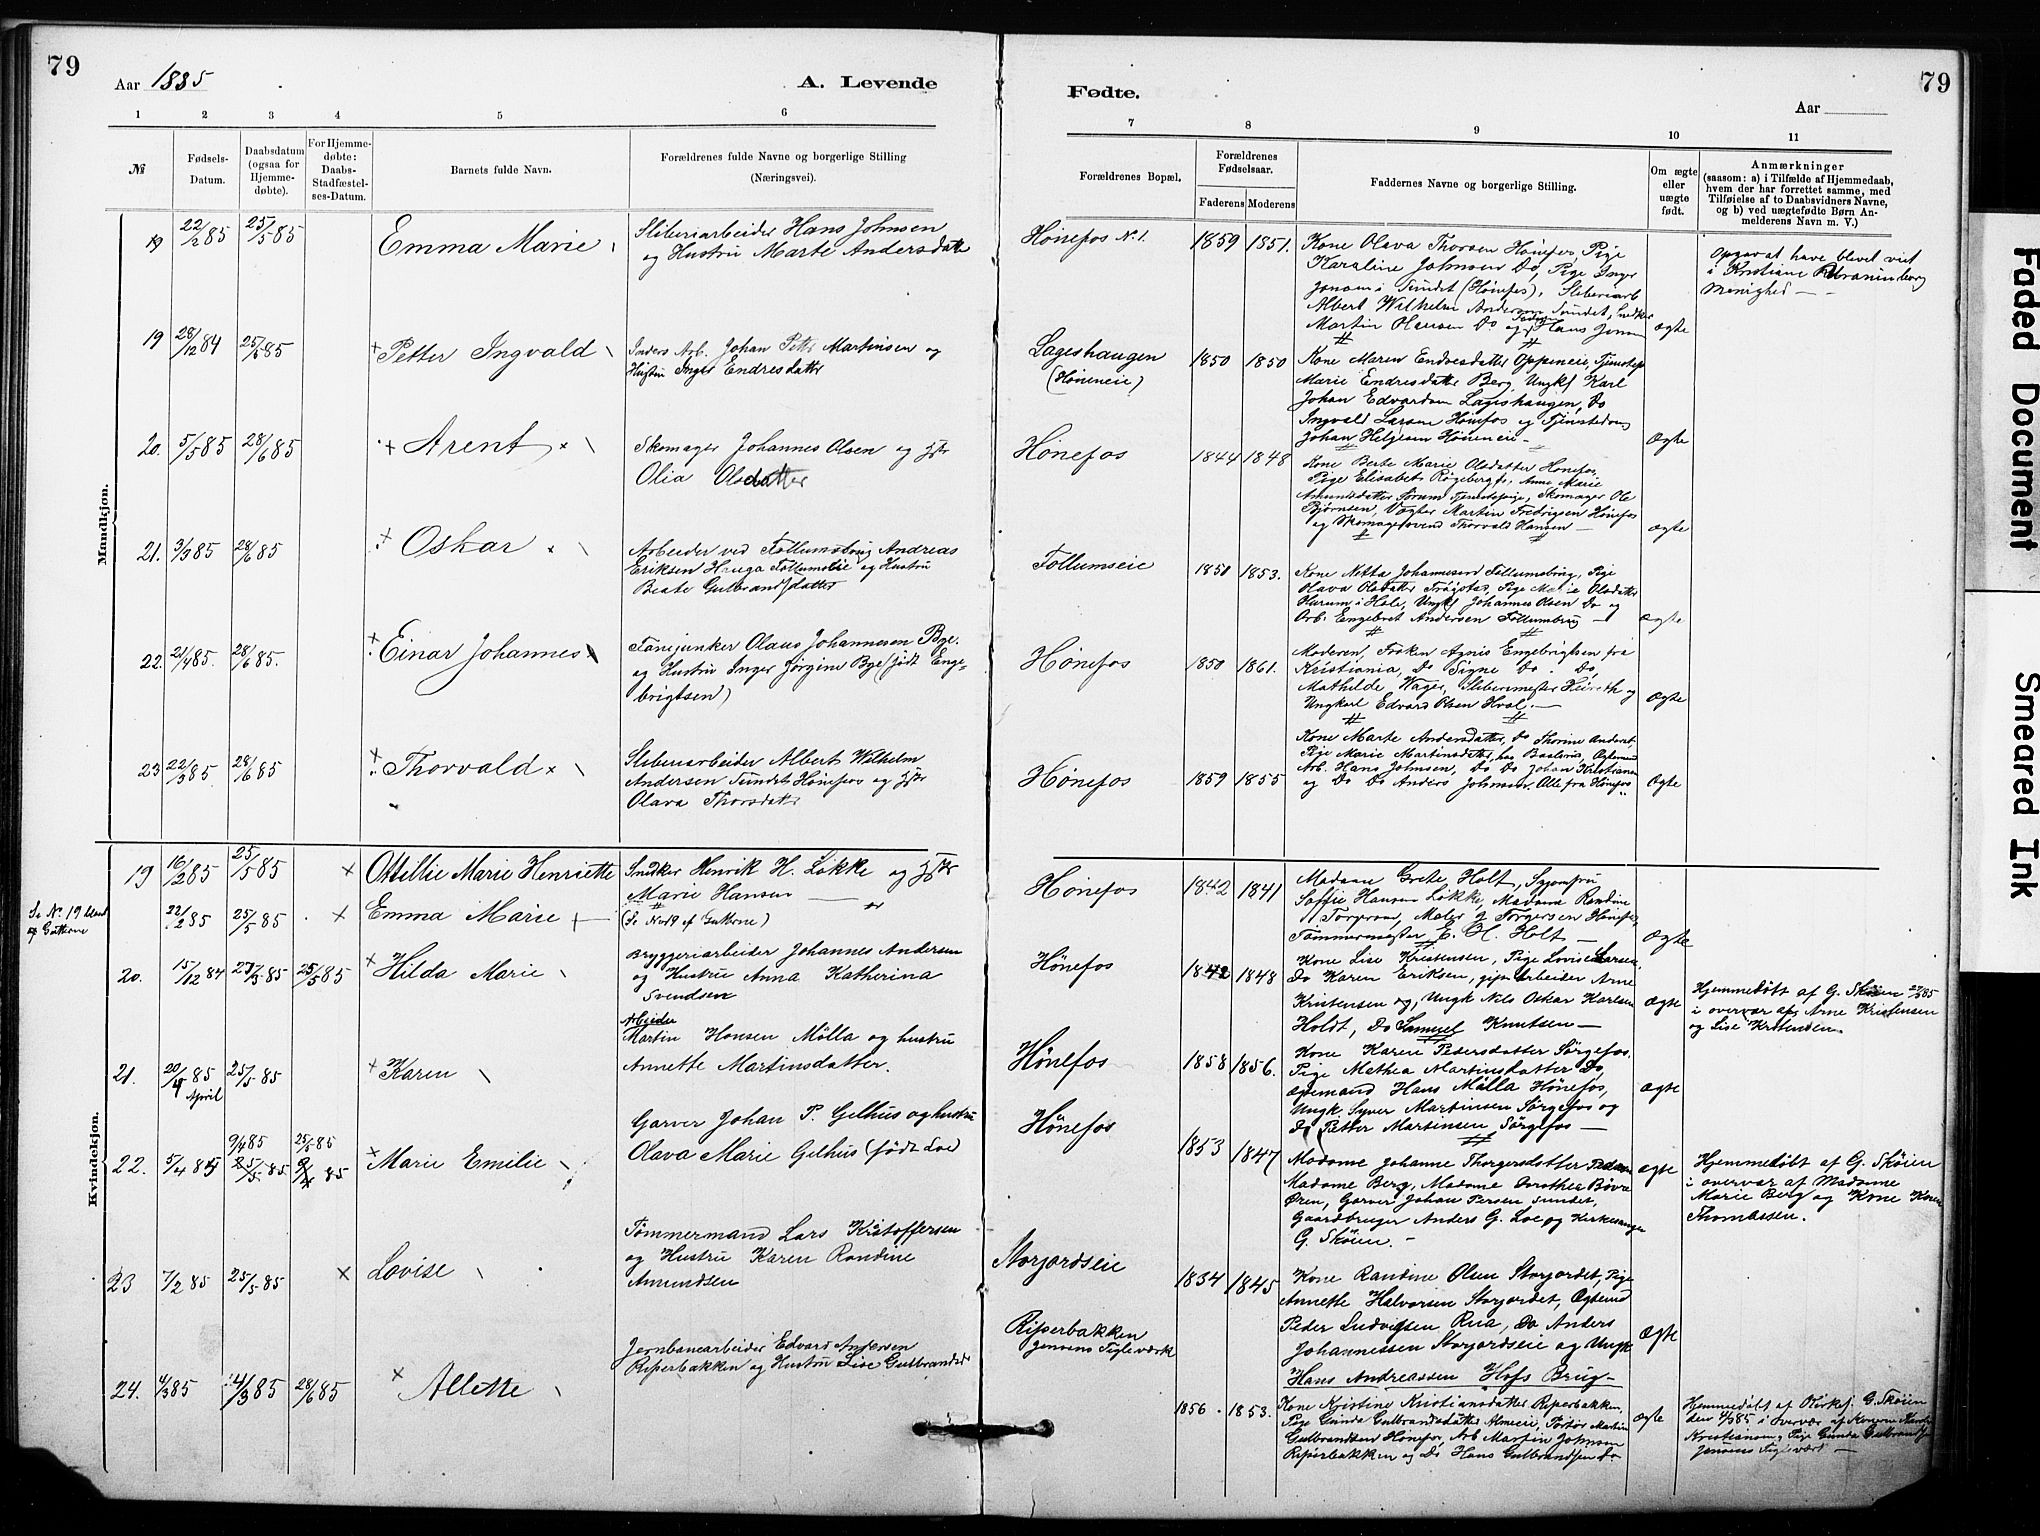 79
Aar 1885
A. Levende
Fødte.
Aar
79
1 2 3 4 5 6 7 8 9 10 11
№
Fødsels-
Datum.
Daabsdatum
(ogsaa for
Hjemme-
døbte).
For Hjemme-
døbte:
Daabs-
Stadfæstel-
ses-Datum.
Barnets fulde Navn.
Forældrenes fulde Navne og borgerlige Stilling
(Næringsvei).
Forældrenes Bopæl.
Forældrenes
Fødselsaar.
Faderens
Moderens
Faddernes Navne og borgerlige Stilling.
Om ægte
eller
uægte
født.
Anmærkninger
(saasom: a) i Tilfælde af Hjemmedaab,
hvem der har forrettet samme, med
Tilføielse af to Daabsvidners Navne,
og b) ved uægtefødte Børn An-
melderens Navn m. V.)
Mandkjøn.
19 22/2 85 25/5 85 Emma Marie
Sliberiarbeider Hans Johnsen
og Hustru Marte Andersdatter
Hønefos N.1. 1859 1851.
Kone Olava Thorsen Hønefos, Pige
Karoline Johnsen Do, Pige Inger
Sundet (Hønefos), Sliberiarb
Albert Wilhelm Andersen Sundet, Snedker
Martin Hansen Do og Hans Jensen
ægte
Opgav at have blevet viet
i Kristiania Uranienborg
Menighed
19 28/12 84 25/5 85 Petter Ingvald
Inders Arb. Johan Petter Martinsen og
Hustru Inger Endresdatter
Lageshaugen
(Høneneie)
1850 1850
Kone Maren Endresdatter Oppeneie, Tjenstepige
Marie Endresdatter Berg, Ungkf Karl
Johan Edvardsen Lageshaugen, Do
Ingvald Larsen Hønefos og Tjenstedreng
Johan Helgesen Høneneie
ægte
20. 5/5 85 28/6 85 Arent
Skomager Johannes Olsen og Hstr
Olia Olsdatter
Hønefos 1844 1848
Kone Berte Marie Olsdatter Hønefos,
Pige Elisabet Røgeberg, Anne Marie
Amundsdatter Sørum Tjenstepige, Skomager Ole
Bjørnsen, Vægter Martin Fredrigsen Hønefos
og Skomagersvend Thorvald Hansen
ægte
21. 3/3 85 28/6 85 Oskar
Arbeider ved Follumsbrug Andreas
Eriksen Hauga Follumseie og Hustru
Beate Gulbrandsdatter
Follumseie 1850 1853.
Kone Netta Johannesen Follumsbrug, Pige
Olava Olsdatter Trøgstad, Pige Marie Olsdatter
Harum i Hole, Ungkf Johannes Olsen Do og
Arb. Engebret Andersen Follumbrug
ægte
22. 21/4 85. 28/6 85. Einar Johannes
Fanejunker Olaus Johannesen Bye.
og Hustru Inger Jørgine Bye (født Enge-
brigtsen)
Hønefos 1850 1861.
Moderen, Frøken Agnis Engebrigtsen fra
Kristiania, Do Signe Do. Do,
Mathilde Wager, Slibermester Heireth og
Ungkarl Edvard Olsen Hval.
ægte
23 22/3 85. 28/6 85 Thorvald
Sliberiarbeider Albert Wilhelm
Andersen Sundet Hønefos og Hstr
Olava Thorsdatter
Hønefos 1859 1855
Kone Marte Andersdatter, Do Thorine Anders,
Pige Marie Martinsdatter,
Arb. Hans Johnsen, Do Do Johan Kristiansen
og Do Do Anders Johnsen. Alle fra Hønefos
ægte
Kvindekjøn.
19 16/2 85 25/5 85 Ottillie Marie Henriette
Snedker Henrik H. Løkke og Hstr
Marie Hansen
Hønefos 1842 1841
Madam Grete Holt, Syjomfru
Soffie Hansen Løkke, Madame Randine
Torgersen, Maler J. Torgersen Hønefos,
Tømmermester E. H. Holt
ægte
Se No. 19 bland
af Gutterne
22/2 85 25/5 85 Emma Marie
(Se No 19 af Gutterne)
20. 15/12 84 27/3 85 25/5 85 Hilda Marie
Bryggeriarbeider Johannes Andersen
og Hustru Anna Katherina
Svendsen
Hønefos 1842 1848
Kone Lise Kristensen, Pige Lovise Larsen,
Do Karen Eriksen, gift Arbeider Arne
Kristensen og, Ungk Nils Oskar Karlsen
Holdt, Do Samuel Knutsen
ægte
Hjemmedøbt af G. Skøien 27/3 85
i overvær af Arne Kristensen
og Lise Kristensen.
21. 20/4 85 April 25/5 85 Karen
Arbeider
Martin Hansen Mølla og hustru
Annette Martinsdatter.
Hønefos 1858 1856.
Kone Karen Pedersdatter Sørgefos.
Pige Mathea Martinsdatter Do,
Hans Mølla Hønefos,
Ungk Syver Martinsen Sørgefos og
Do Petter Martinsen Sørgefos
ægte
22. 5/4 85 9/4 85 25/5 85 25/5 85 9/4 85 Marie Emilie
Garver Johan P. Gelhus og hustru
Olava Marie Gelhus (født Loe)
Hønefos 1853 1847
Madame Johanne Thorgersdatter
Madame Berg, Madame Dorothea Bøvre
Øren, Garver Johan Persen Sundet,
Gaardbruger Anders G. Loe og Kirkesanger
G. Skøien.
ægte
Hjemmedøbt af G. Skøien
i overvær af Madame
Marie Berg og Kone Karen
Thomassen.
23 7/2 85 25/5 85 Lovise
Tømmermand Lars Kristoffersen
og Hustru Karen Randine
Amundsen
Storjordseie 1834 1845
Kone Randine Olsen Storjordet, Pige
Annette Halvorsen Storjordet, Ægtemd
Peder Ludvigsen Rua, Do Anders
Johannessen Storjordseie og Ungk
Hans Andreassen Hofs Brug
ægte
24. 4/3 85 4/3 85 28/6 85 Allette
Jernbanearbeider Edvard Andersen
Riperbakken og Hustru Lise Gulbrandsd
Riperbakken
Jensens Tegleværk
1856. 1853.
Kone Kristine Kristiansdatter Riperbakken,
Pige Gunda Gulbrandsdatter Almeeie, Martin
Gulbrandsen Hønefos, Arb Martin Johnsen
Riperbakken og Do Hans Gulbrandsen Do
ægte
Hjemmedøbt af Kirks. G. Skøien
den 4/3 85 i overvær af Konerne
Kristiansen, Pige Gunda Gulbrandsen
Jensens Teglværk
Faded Document
Smeared Ink